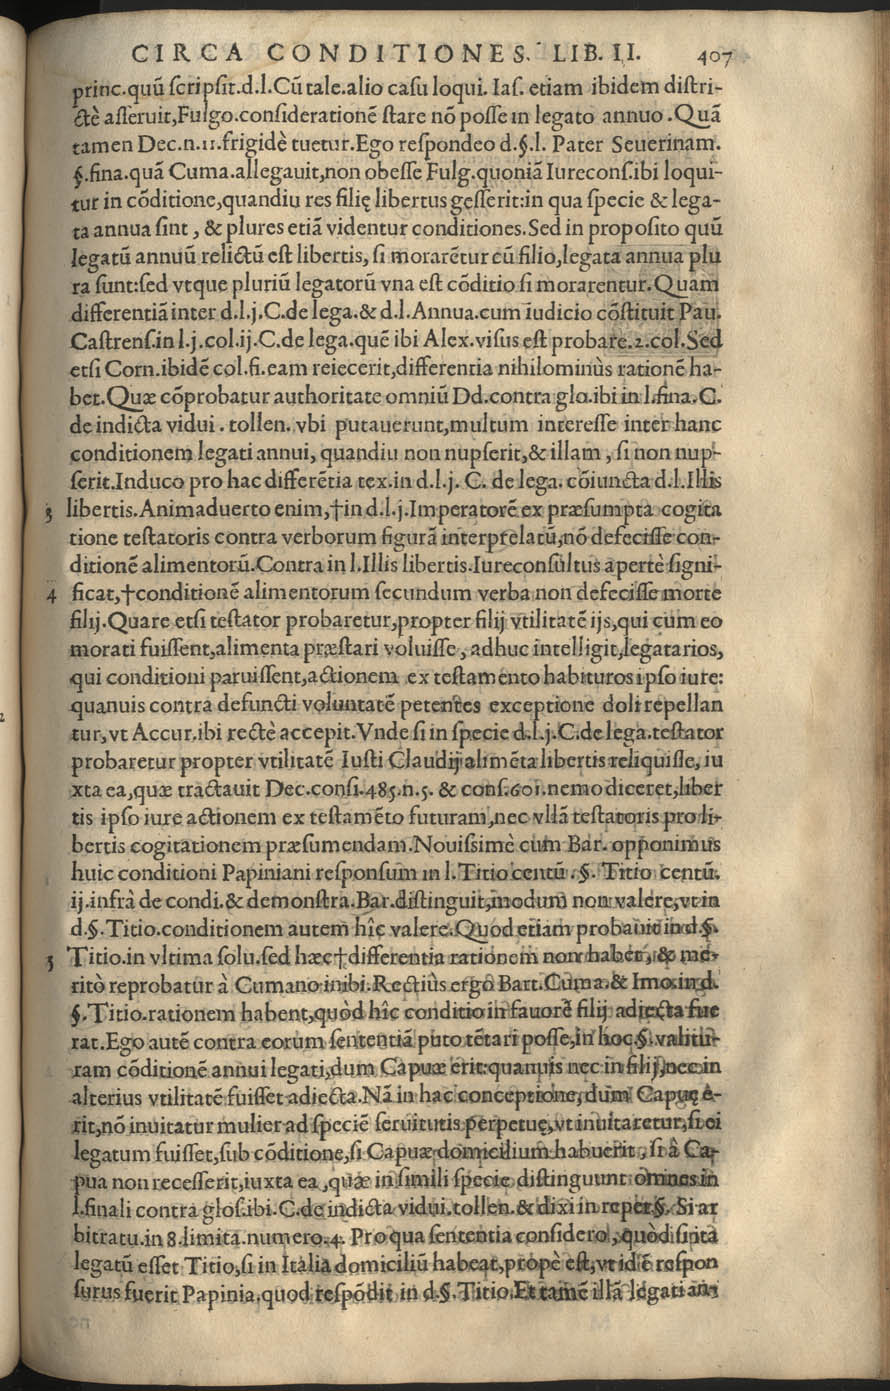 CIRCA CONDITIONES. LIB. II. 407
princ.quū ſcripſit.d.l.Cū tale.alio caſu loqui. Iaſ. etiam ibidem diſtri-
ctè aſſeruit,Fulgo.conſiderationē ſtare nō poſſe in legato annuo .Quā
tamen Dec.n.11.frigidè tuetur.Ego reſpondeo d.§.l. Pater Seuerinam.
§.fina.quā Cuma.allegauit,non obeſſe Fulg.quoniā Iureconſ.ibi loqui-
tur in cōditione,quandiu res filię libertus geſſerit:in qua ſpecie & lega-
ta annua ſint , & plures etiā videntur conditiones.Sed in propoſito quū
legatū annuū relictū eſt libertis, ſi morarētur cū filio,legata annua plu
ra ſunt:ſed vtque pluriū legatorū vna eſt cōditio ſi morarentur.Quam
differentiā inter d.l.j.C.de lega.& d.l.Annua.cum iudicio cōſtituit Pau.
Caſtrenſ.in l.j.col.ij.C.de lega.quē ibi Alex.viſus eſt probare.2.col.Sed
etſi Corn.ibidē col.fi.eam reiecerit,differentia nihilominùs rationē ha-
bet.Quæ cōprobatur authoritate omniū Dd.contra glo.ibi in l.fina.C.
de indicta vidui . tollen. vbi putauerunt,multum intereſſe inter hanc
conditionem legati annui, quandiu non nupſerit,& illam , ſi non nup-
ſerit.Induco pro hac differētia tex.in d.l.j. C. de lega. cōiuncta d.l.Illis
3 libertis.Animaduerto enim,†in d.l.j.Imperatorē ex præſumpta cogita
tione teſtatoris contra verborum figurā interpretatū,nō defeciſſe con-
ditionē alimentorū.Contra in l.Illis libertis.Iureconſultus apertè ſigni-
4 ficat,†conditionē alimentorum ſecundum verba non defeciſſe morte
filij.Quare etſi teſtator probaretur,propter filij vtilitatē ijs,qui cum eo
morati fuiſſent,alimenta præſtari voluiſſe , adhuc intelligit,legatarios,
qui conditioni paruiſſent,actionem ex teſtamento habituros ipſo iure:
quanuis contra defuncti voluntatē petentes exceptione doli repellan
tur,vt Accur.ibi rectè accepit.Vnde ſi in ſpecie d.l.j.C.de lega.teſtator
probaretur propter vtilitatē Iuſti Claudij alimēta libertis reliquiſſe, iu
xta ea,quæ tractauit Dec.conſi.485.n.5. & conſ.601.nemo diceret,liber
tis ipſo iure actionem ex teſtamēto futuram,nec vllā teſtatoris pro li-
bertis cogitationem præſumendam.Nouiſſimè cum Bar. opponimus
huic conditioni Papiniani reſponſum in l.Titio centū . §. Titio centū.
ij.infrà de condi.& demonſtra.Bar.diſtinguit,modum non valere,vt in
d.§.Titio.conditionem autem hîc valere.Quod etiam probauit in d.§.
5 Titio.in vltima ſolu.ſed hæc†differentia rationem non habet, & me-
ritò reprobatur à Cumano inibi.Rectiùs ergo Bart.Cuma.& Imo.in d.
§.Titio.rationem habent,quòd hîc conditio in fauorē filij adiecta fue
rat.Ego autē contra eorum ſententiā puto tētari poſſe,in hoc §.valitu-
ram cōditionē annui legati,dum Capuæ erit:quanuis nec in filij,nec in
alterius vtilitatē fuiſſet adiecta.Nā in hac conceptione,dum Capuę e-
rit,nō inuitatur mulier ad ſpeciē ſeruitutis perpetuę,vt inuitaretur,ſi ei
legatum fuiſſet,ſub cōditione,ſi Capuæ domicilium habuerit , ſi à Ca-
pua non receſſerit,iuxta ea ,quæ in ſimili ſpecie diſtinguunt omnes in
l.finali contra gloſ.ibi.C.de indicta vidui.tollen.& dixi in repet.§. Si ar
bitratu.in 8.limita.numero.4. Pro qua ſententia conſidero , quòd ſi ita
legatū eſſet Titio,ſi in Italia domiciliū habeat,propè eſt,vt idē reſpon
ſurus fuerit Papinia.quod reſpōdit in d.§.Titio.Et tamē illā legati